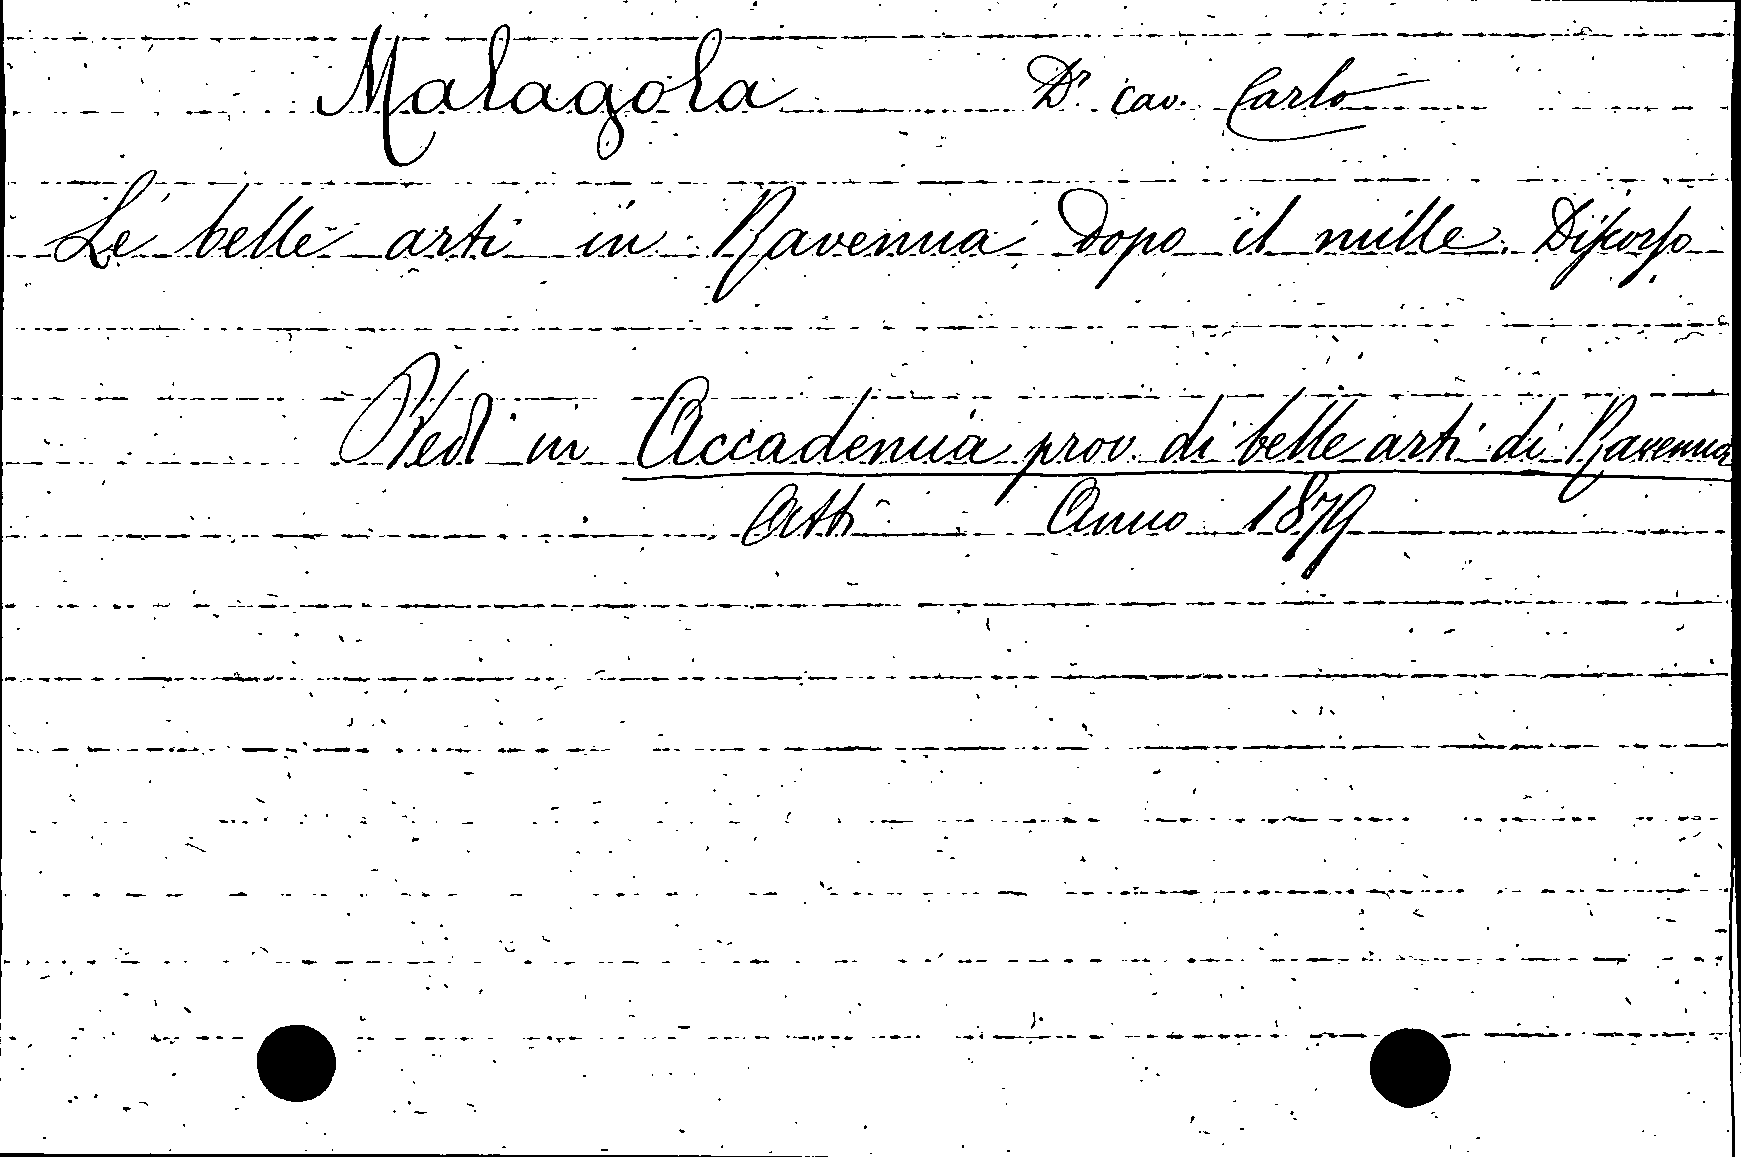 Malagola Dr. cav. Carlo
Le belle arti in Ravenna dopo il mille. Discorso.
Vedi in Accademia prov. di belle arti di Ravenna
Atti Anno 1879